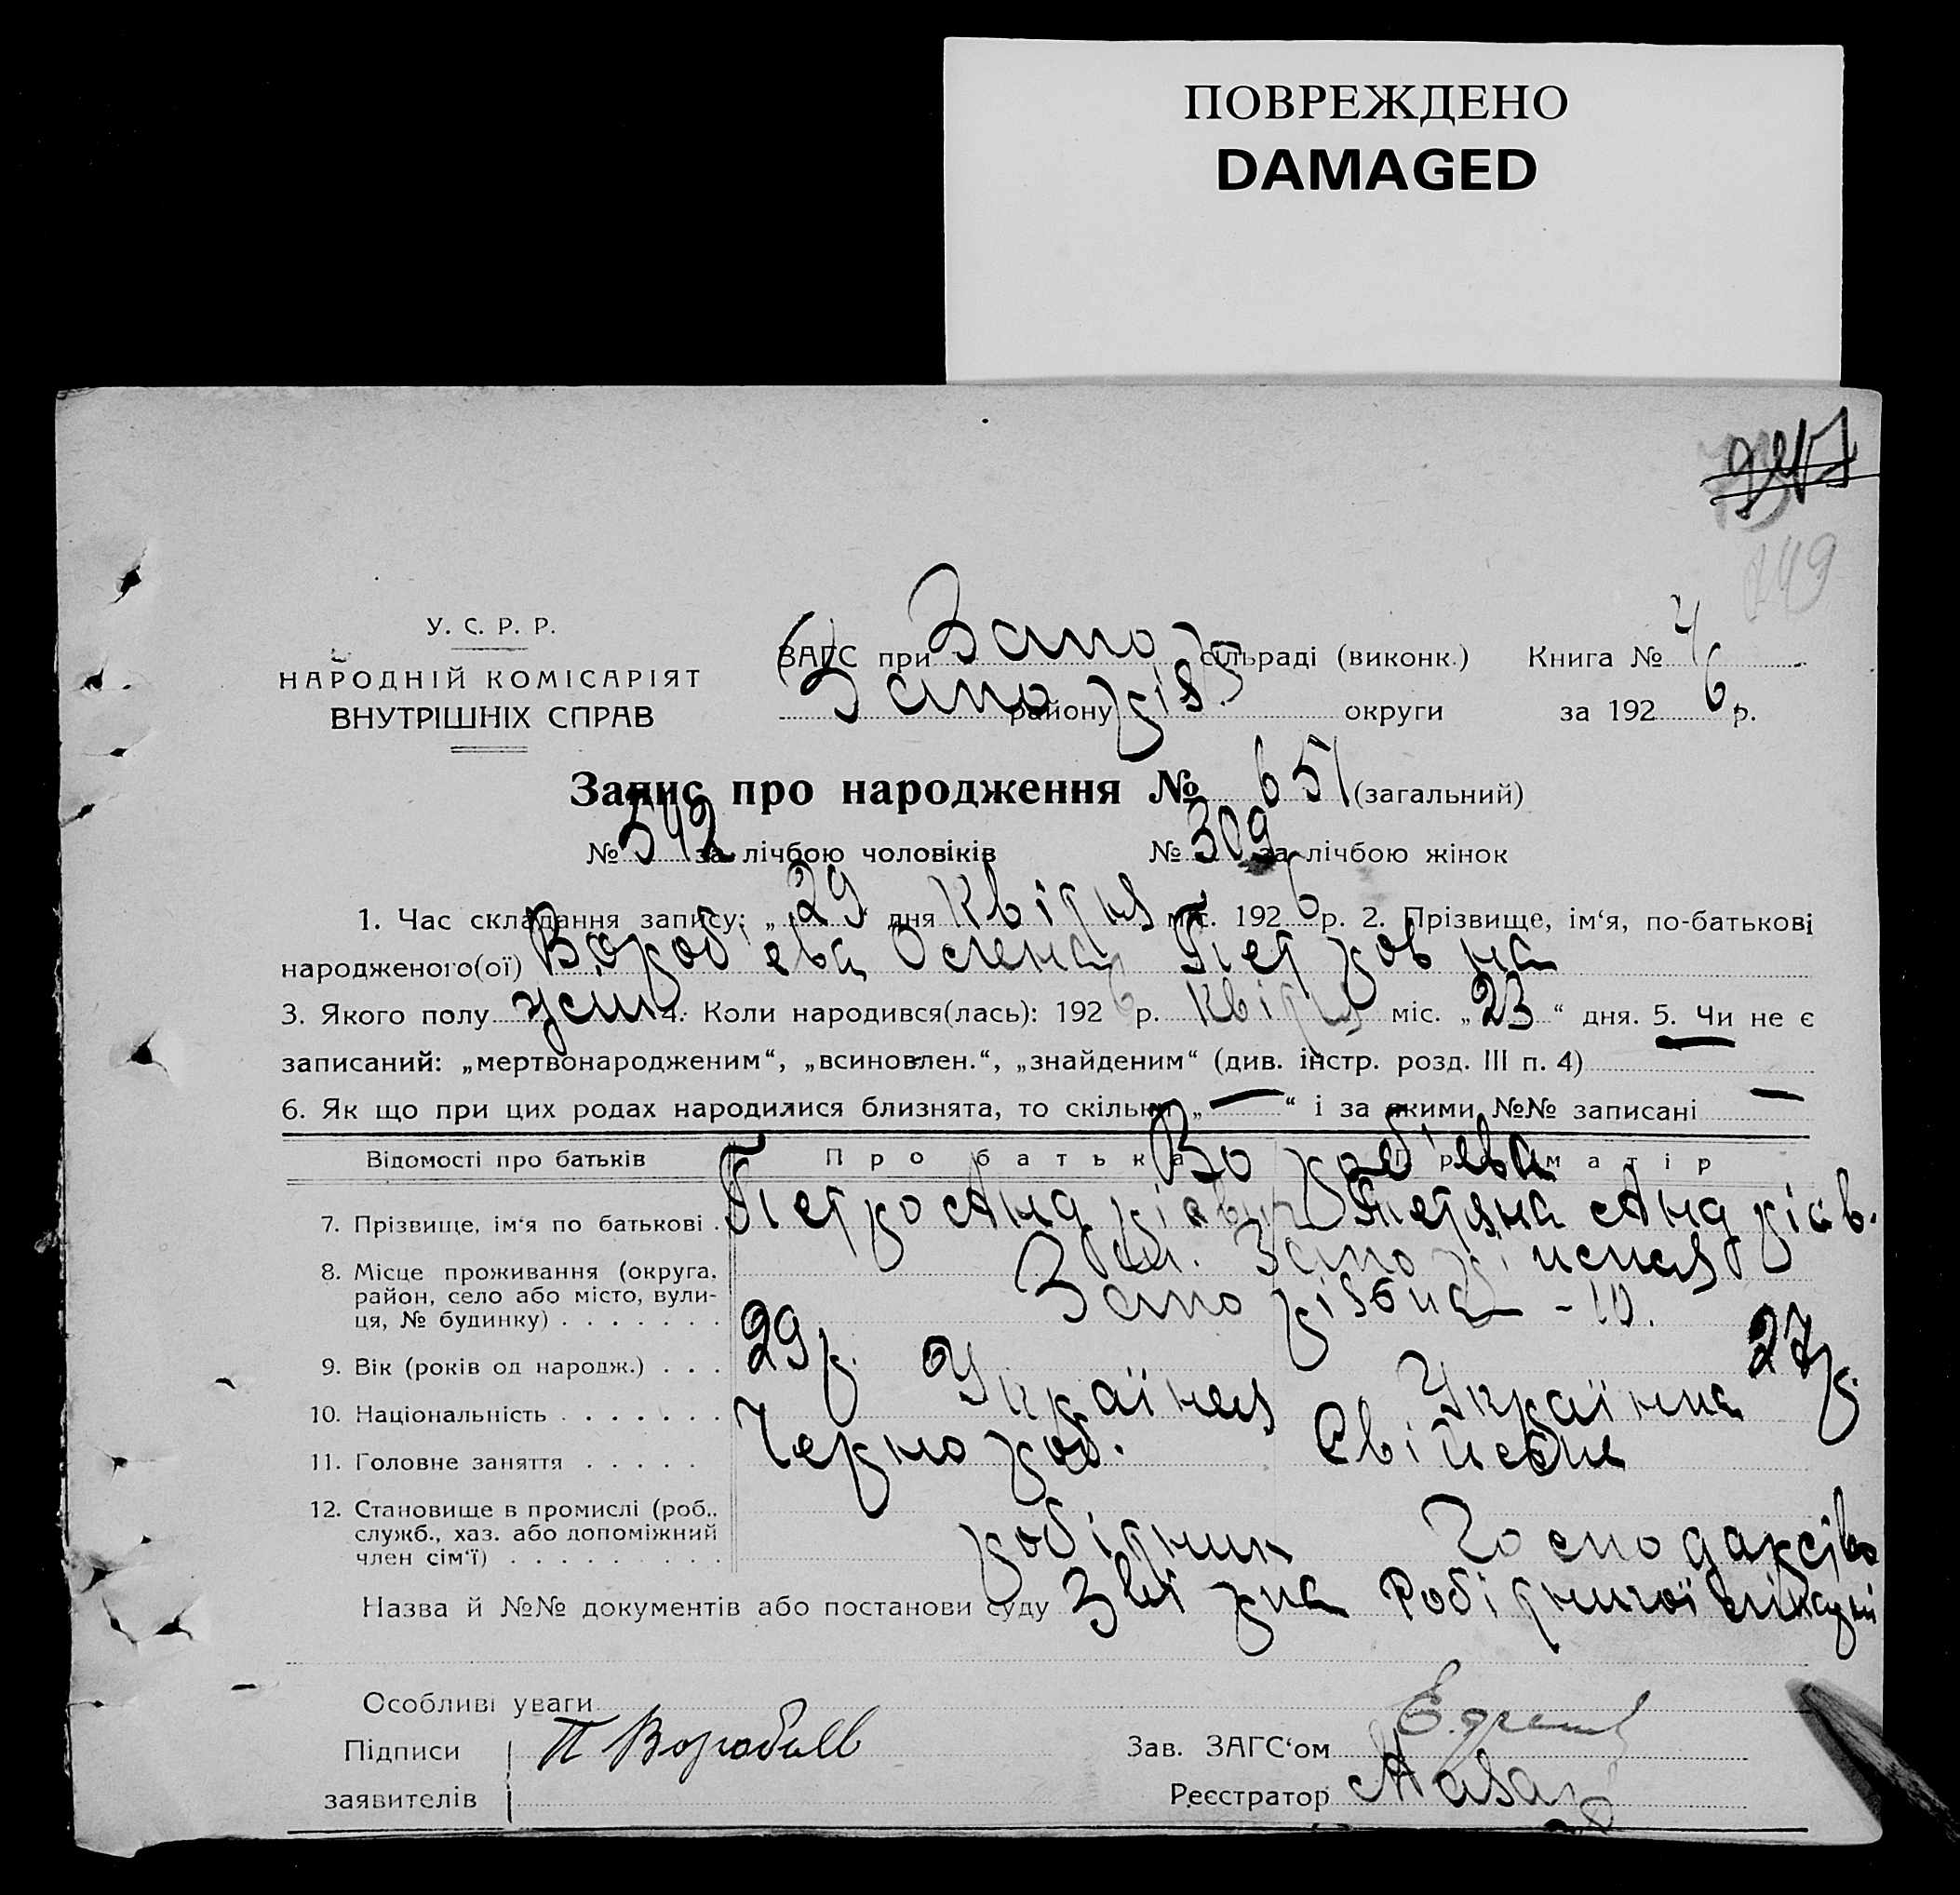 ПОВРЕЖДЕНО
DAMAGED
149
У. С. Р. Р.
НАРОДНІЙ КОМІСАРІЯТ
ВНУТРІШНІХ СПРАВ
ЗАГС при Запо сільраді (виконк.) Книга № 4
району округи за 1926 р.
Запис про народження № 651 (загальний)
№ 342 за лічбою чоловіків № 309 за лічбою жінок
1. Час складання запису: „29“ дня Квітня міс. 1926 р. 2. Прізвище, ім‘я, по-батькові
народженого(ої) Вороб'ева Олена Петровна
3. Якого полу жін 4. Коли народився(лась): 1926 р. Квітня міс. „23“ дня. 5. Чи не є
записаний: „мертвонародженим“, „всиновлен.“, „знайденим“ (див. інстр. розд. III п. 4)
6. Як що при цих родах народилися близнята, то скільки „—“ і за якими №№ записані —
Відомості про батьків Про батька Про матір
Вороб'ева
7. Прізвище, ім‘я по батькові Петро Андріавич Тетяна Андріав.
8. Місце проживання (округа, район, село або місто, вулиця, № будинку) м. Запоріжжя
- 10.
9. Вік (років од народж.) 29 р. 27 р.
10. Національність Україней Українка
11. Головне заняття Чернороб.
12. Становище в промислі (роб., служб., хаз. або допоміжний член сім‘ї) робітник Господарство
Назва й №№ документів або постанови суду Робітничої
Особливі уваги
Підписи заявителів П Воробьев
Зав. ЗАГС‘ом
Реєстратор